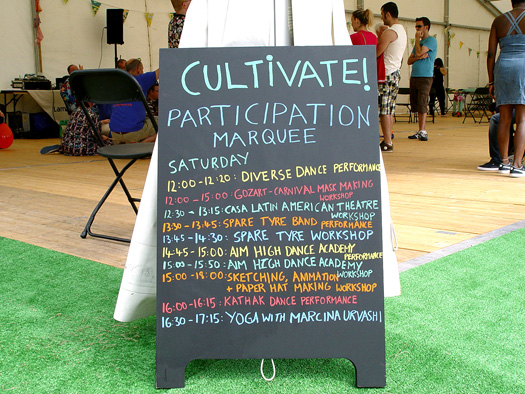 CULTIVATE!
PARTICIPATION
MARQUEE
SATURDAY
12:00-12:20: DIVERSE DANCE PERFORMANCE
12:00-15:00: GOZART-CARNIVAL MASK MAKING
WORKSHOP
12:30-13:15: CASA LATIN AMERICAN THEATRE
WORKSHOP
13:30-13:45: SPARE TYRE BAND PERFORMANCE
13:45-14:30: SPARE TYRE WORKSHOP
14:45-15:00: AIM HIGH DANCE ACADEMY
PERFORMANCE
15:00-15:50: AIM HIGH DANCE ACADEMY
WORKSHOP
15:00-18:00: SKETCHING, ANIMATION
+ PAPER HAT MAKING WORKSHOP
16:00-16:15: KATHAK DANCE PERFORMANCE
16:30-17:15: YOGA WITH MARCINA URVASHI